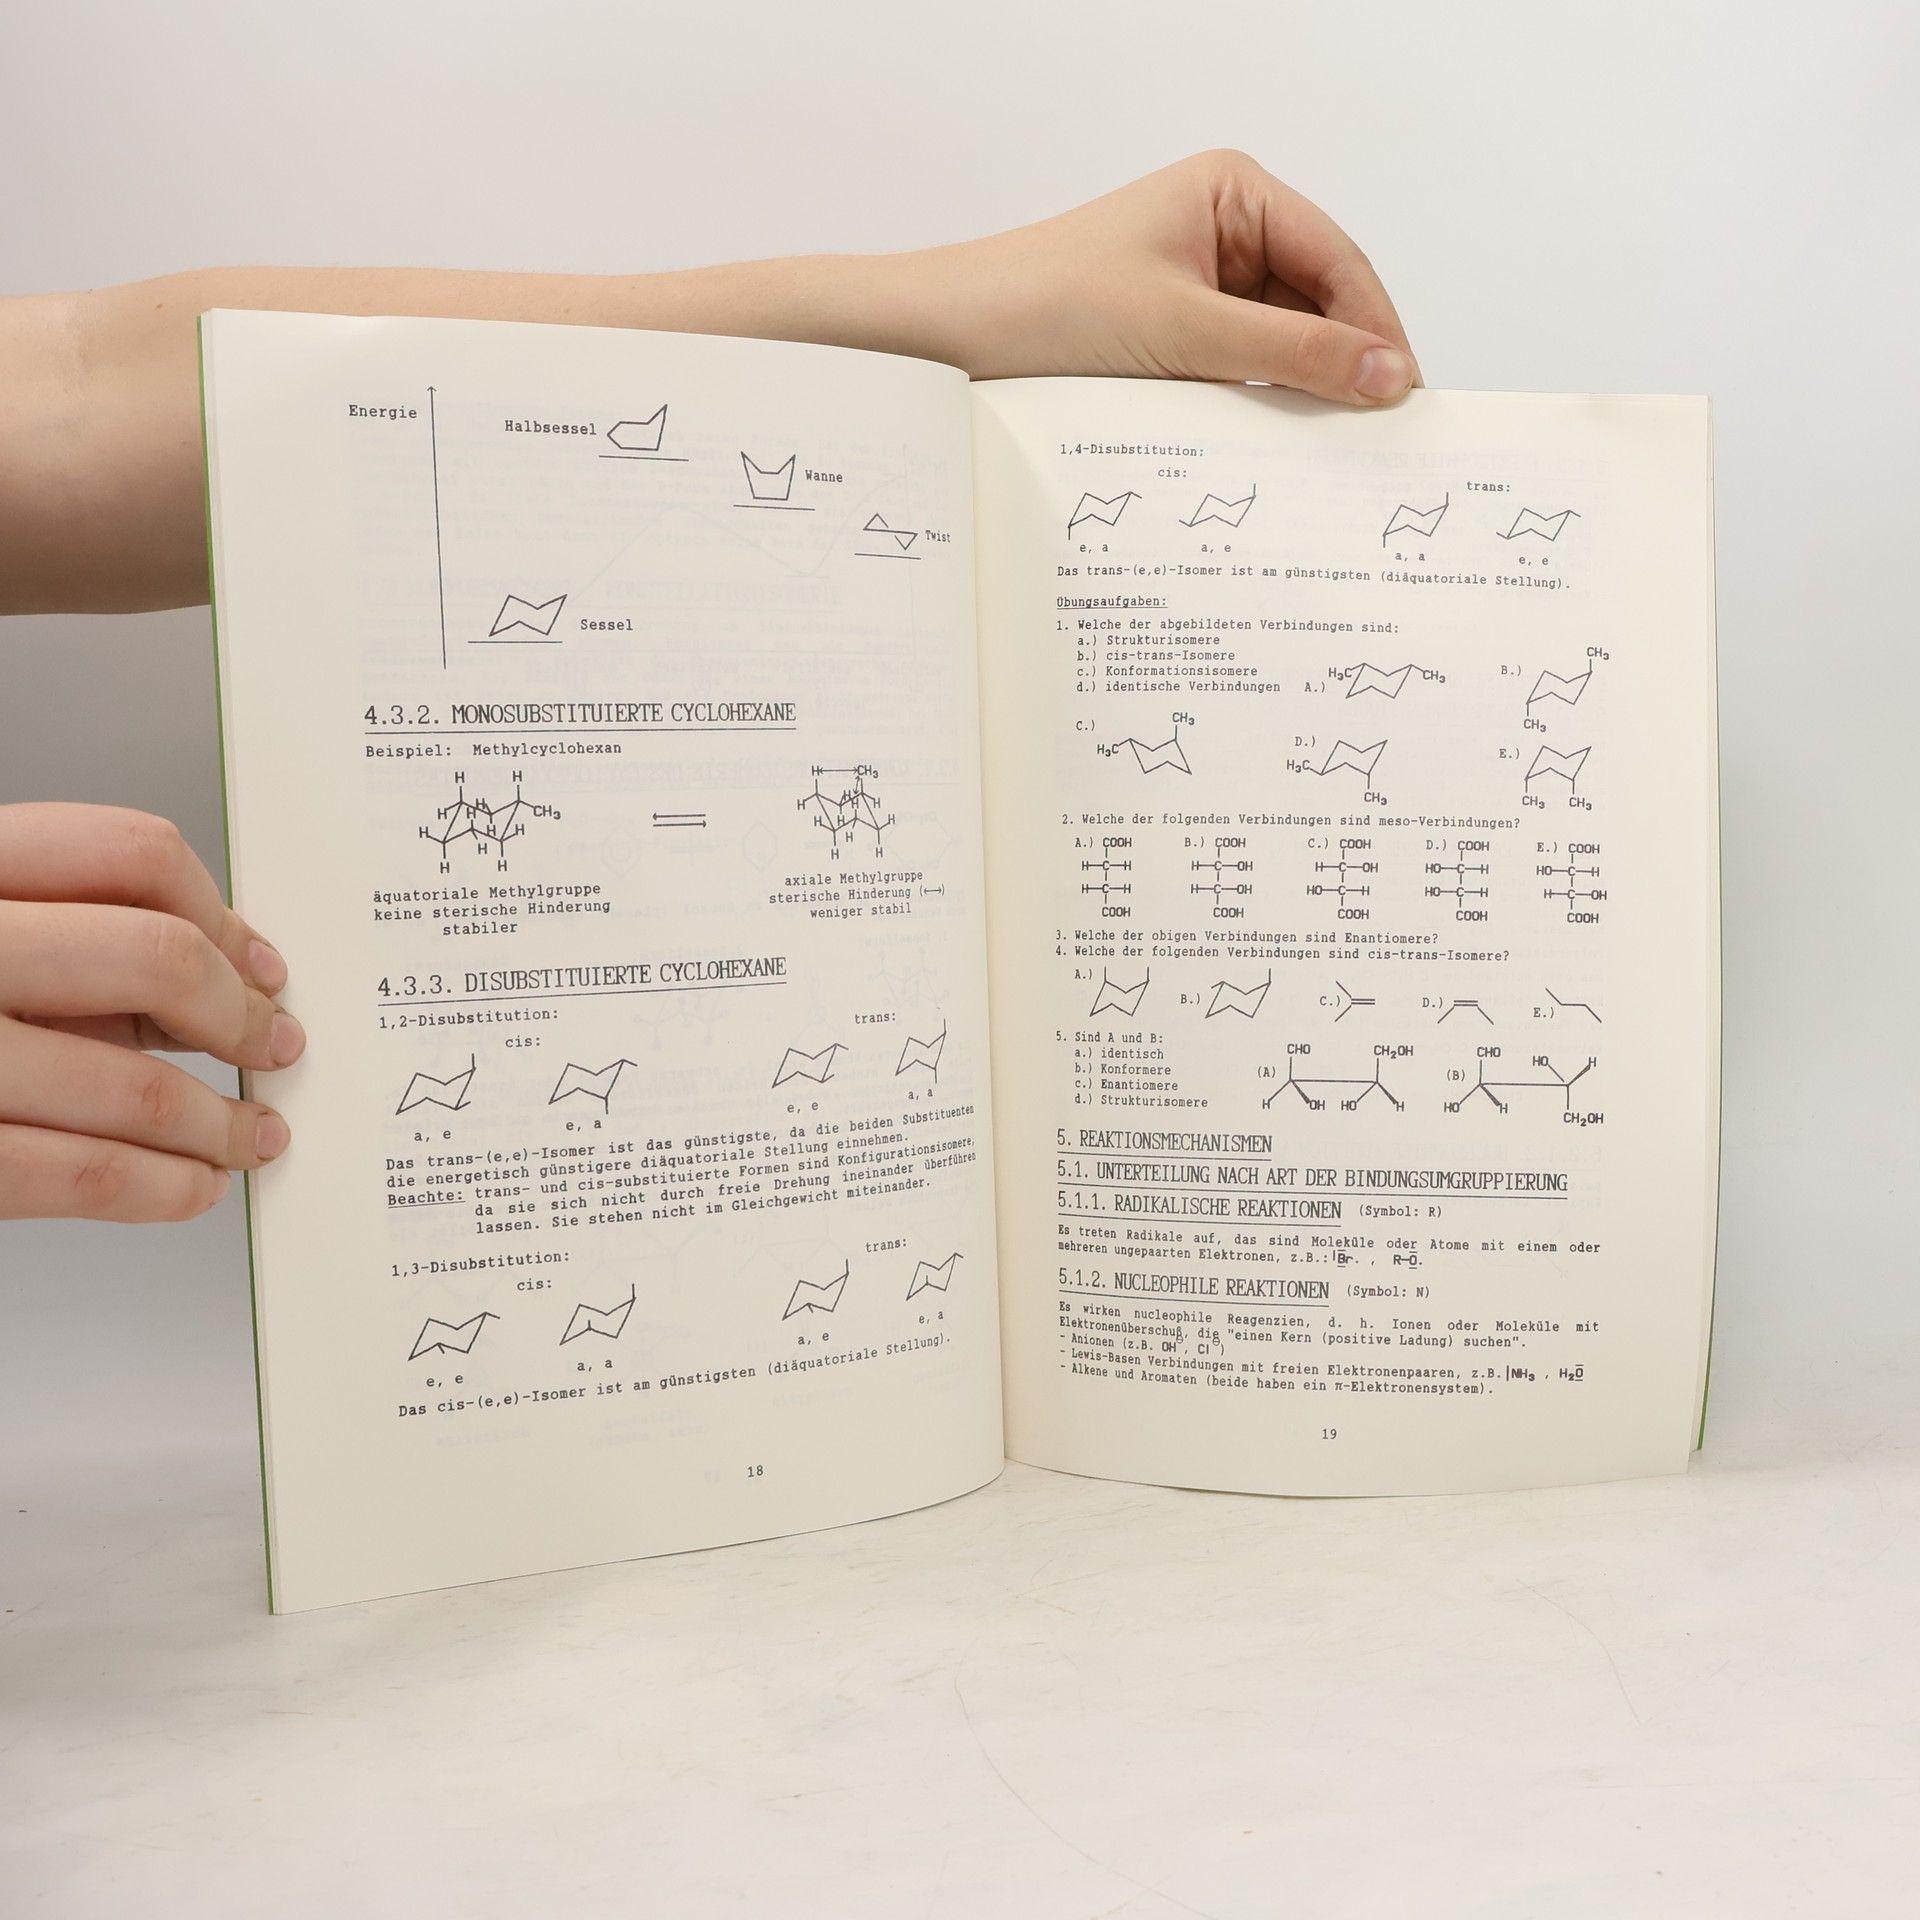 Energie
Halbsessel
Wanne
Twist
Sessel
4.3.2. MONOSUBSTITUIERTE CYCLOHEXANE
Beispiel: Methylcyclohexan
H H H CH₃
H H H H CH₃ H H H H
H H H H H H H
H H H H H
äquatoriale Methylgruppe
keine sterische Hinderung
stabiler
axiale Methylgruppe
sterische Hinderung (↔)
weniger stabil
4.3.3. DISUBSTITUIERTE CYCLOHEXANE
1,2-Disubstitution:
cis: trans:
a, e e, a e, e a, a
Das trans-(e,e)-Isomer ist das günstigste, da die beiden Substituenten
die energetisch günstigere diäquatoriale Stellung einnehmen.
Beachte: trans- und cis-substituierte Formen sind Konfigurationsisomere,
da sie sich nicht durch freie Drehung ineinander überführen
lassen. Sie stehen nicht im Gleichgewicht miteinander.
1,3-Disubstitution:
cis: trans:
e, e a, a a, e e, a
Das cis-(e,e)-Isomer ist am günstigsten (diäquatoriale Stellung).
18
1,4-Disubstitution:
cis: trans:
e, a a, e a, a e, e
Das trans-(e,e)-Isomer ist am günstigsten (diäquatoriale Stellung).
Übungsaufgaben:
1. Welche der abgebildeten Verbindungen sind:
a.) Strukturisomere
b.) cis-trans-Isomere
c.) Konformationsisomere
d.) identische Verbindungen
A.) H₃C CH₃
B.) CH₃ CH₃
C.) H₃C CH₃
D.) H₃C CH₃
E.) CH₃ CH₃
2. Welche der folgenden Verbindungen sind meso-Verbindungen?
A.) COOH B.) COOH C.) COOH D.) COOH E.) COOH
H-C-H H-C-OH H-C-OH HO-C-H HO-C-H
H-C-H H-C-OH HO-C-H HO-C-H H-C-OH
COOH COOH COOH COOH COOH
3. Welche der obigen Verbindungen sind Enantiomere?
4. Welche der folgenden Verbindungen sind cis-trans-Isomere?
A.) B.) C.) D.) E.)
5. Sind A und B:
a.) identisch
b.) Konformere
c.) Enantiomere
d.) Strukturisomere
(A) CHO CH₂OH
H OH HO H
(B) CHO HO H
HO H CH₂OH
5. REAKTIONSMECHANISMEN
5.1. UNTERTEILUNG NACH ART DER BINDUNGSUMGRUPPIERUNG
5.1.1. RADIKALISCHE REAKTIONEN (Symbol: R)
Es treten Radikale auf, das sind Moleküle oder Atome mit einem oder
mehreren ungepaarten Elektronen, z.B.: |B̅r̲. , R-O̲̅.
5.1.2. NUCLEOPHILE REAKTIONEN (Symbol: N)
Es wirken nucleophile Reagenzien, d. h. Ionen oder Moleküle mit
Elektronenüberschuß, die "einen Kern (positive Ladung) suchen".
- Anionen (z.B. OH⊖, Cl⊖)
- Lewis-Basen Verbindungen mit freien Elektronenpaaren, z.B. |NH₃ , H₂O̲̅
- Alkene und Aromaten (beide haben ein π-Elektronensystem).
19